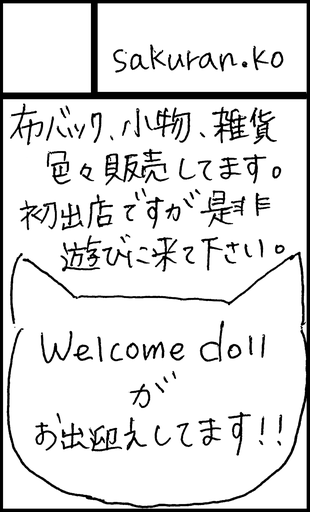 sakuran.ko
布バック、小物、雑貨
色々販売してます。
初出店ですが是非
遊びに来て下さい。
Welcome doll
が
お出迎えしてます!!